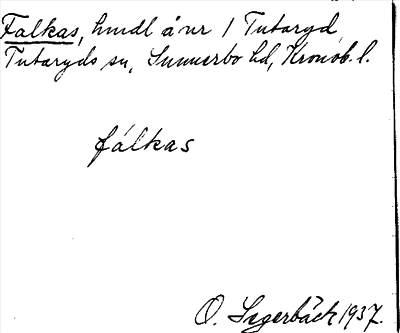 Falkas, hmdl å nr 1 Tutaryd
Tutaryds sn, Sunnerbo hd, Kronob. l.
fálkas
O. Segerbäck 1937.